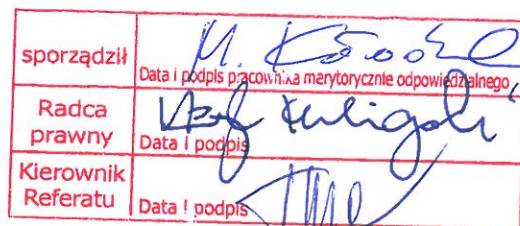 sporządził
Data i podpis pracownika merytorycznie odpowiedzialnego
Radca
prawny
Data i podpis
Kierownik
Referatu
Data i podpis